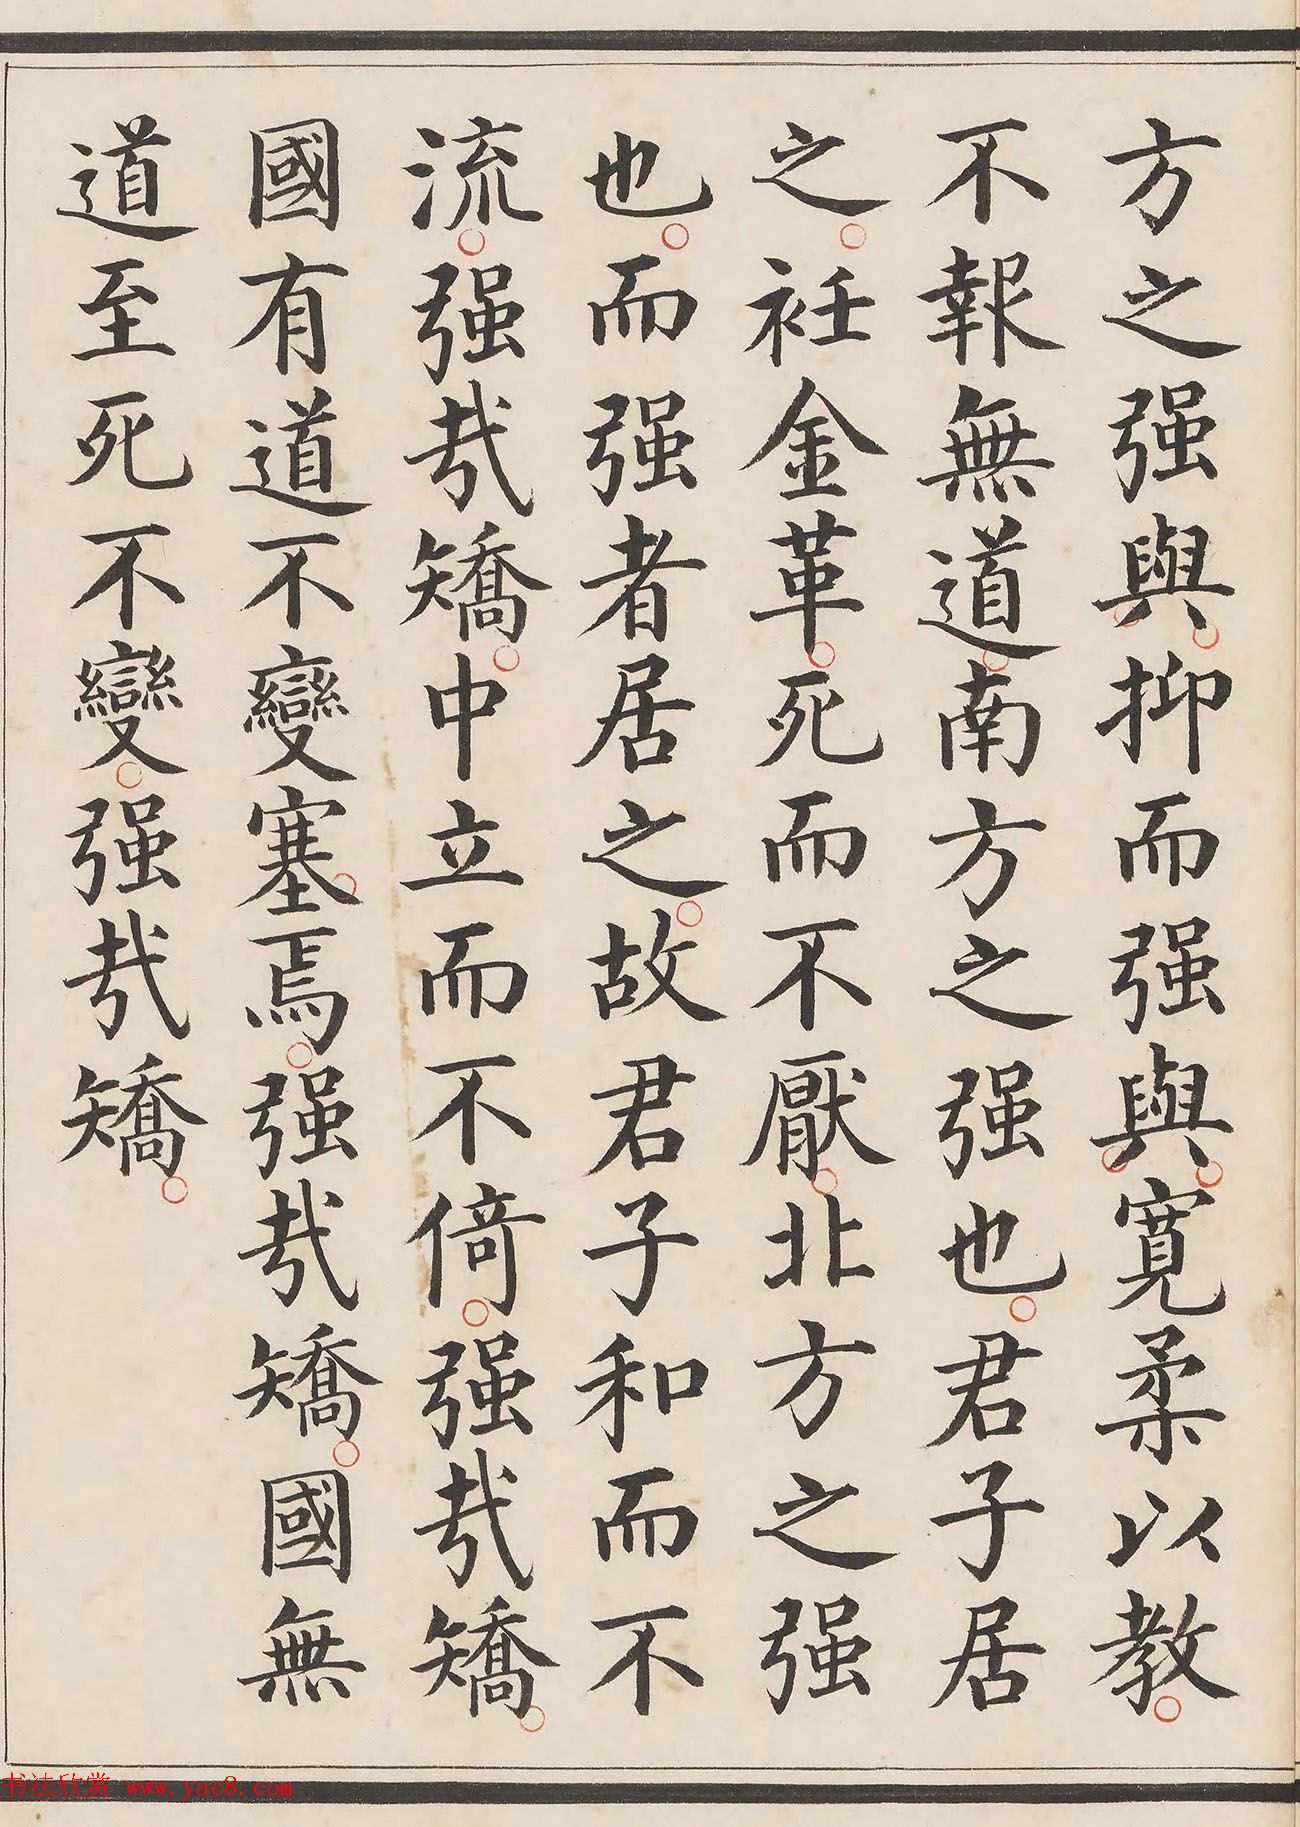 方之强與抑而强與寬柔以教
不報無道南方之强也君子居
之衽金革死而不厭北方之强
也而强者居之故君子和而不
流强哉矯中立而不倚强哉矯
國有道不變塞焉强哉矯國無
道至死不變强哉矯
书法欣赏 www.yac8.com